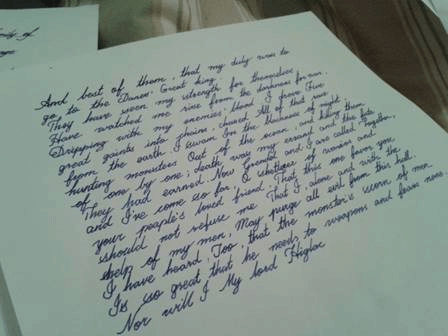 dy of
And best of them, that my duty was to
go to the Danes' Great king.
They have seen my strength for themselves
Have watched me rise from the darkness for war.
Dripping with my enemies' blood I drove Five
great gaints into chains, chased All of that race
from the earth I swam In the blackness of night,
hunting monsters Out of the ocean, and killing them
of one by one; death was my errand and the fate
They had earned Now Grendel and I are called Together,
and I've come so far, O shelterer of warriors and
your people's loved friend That this one favor you
should not refuse me That I, alone and with the
help of my men, May purge all evil from this hall.
I have heard, Too, that the monster's scorn of men
Is so great that he needs no weapons and fears none.
Nor will I My lord Higlac